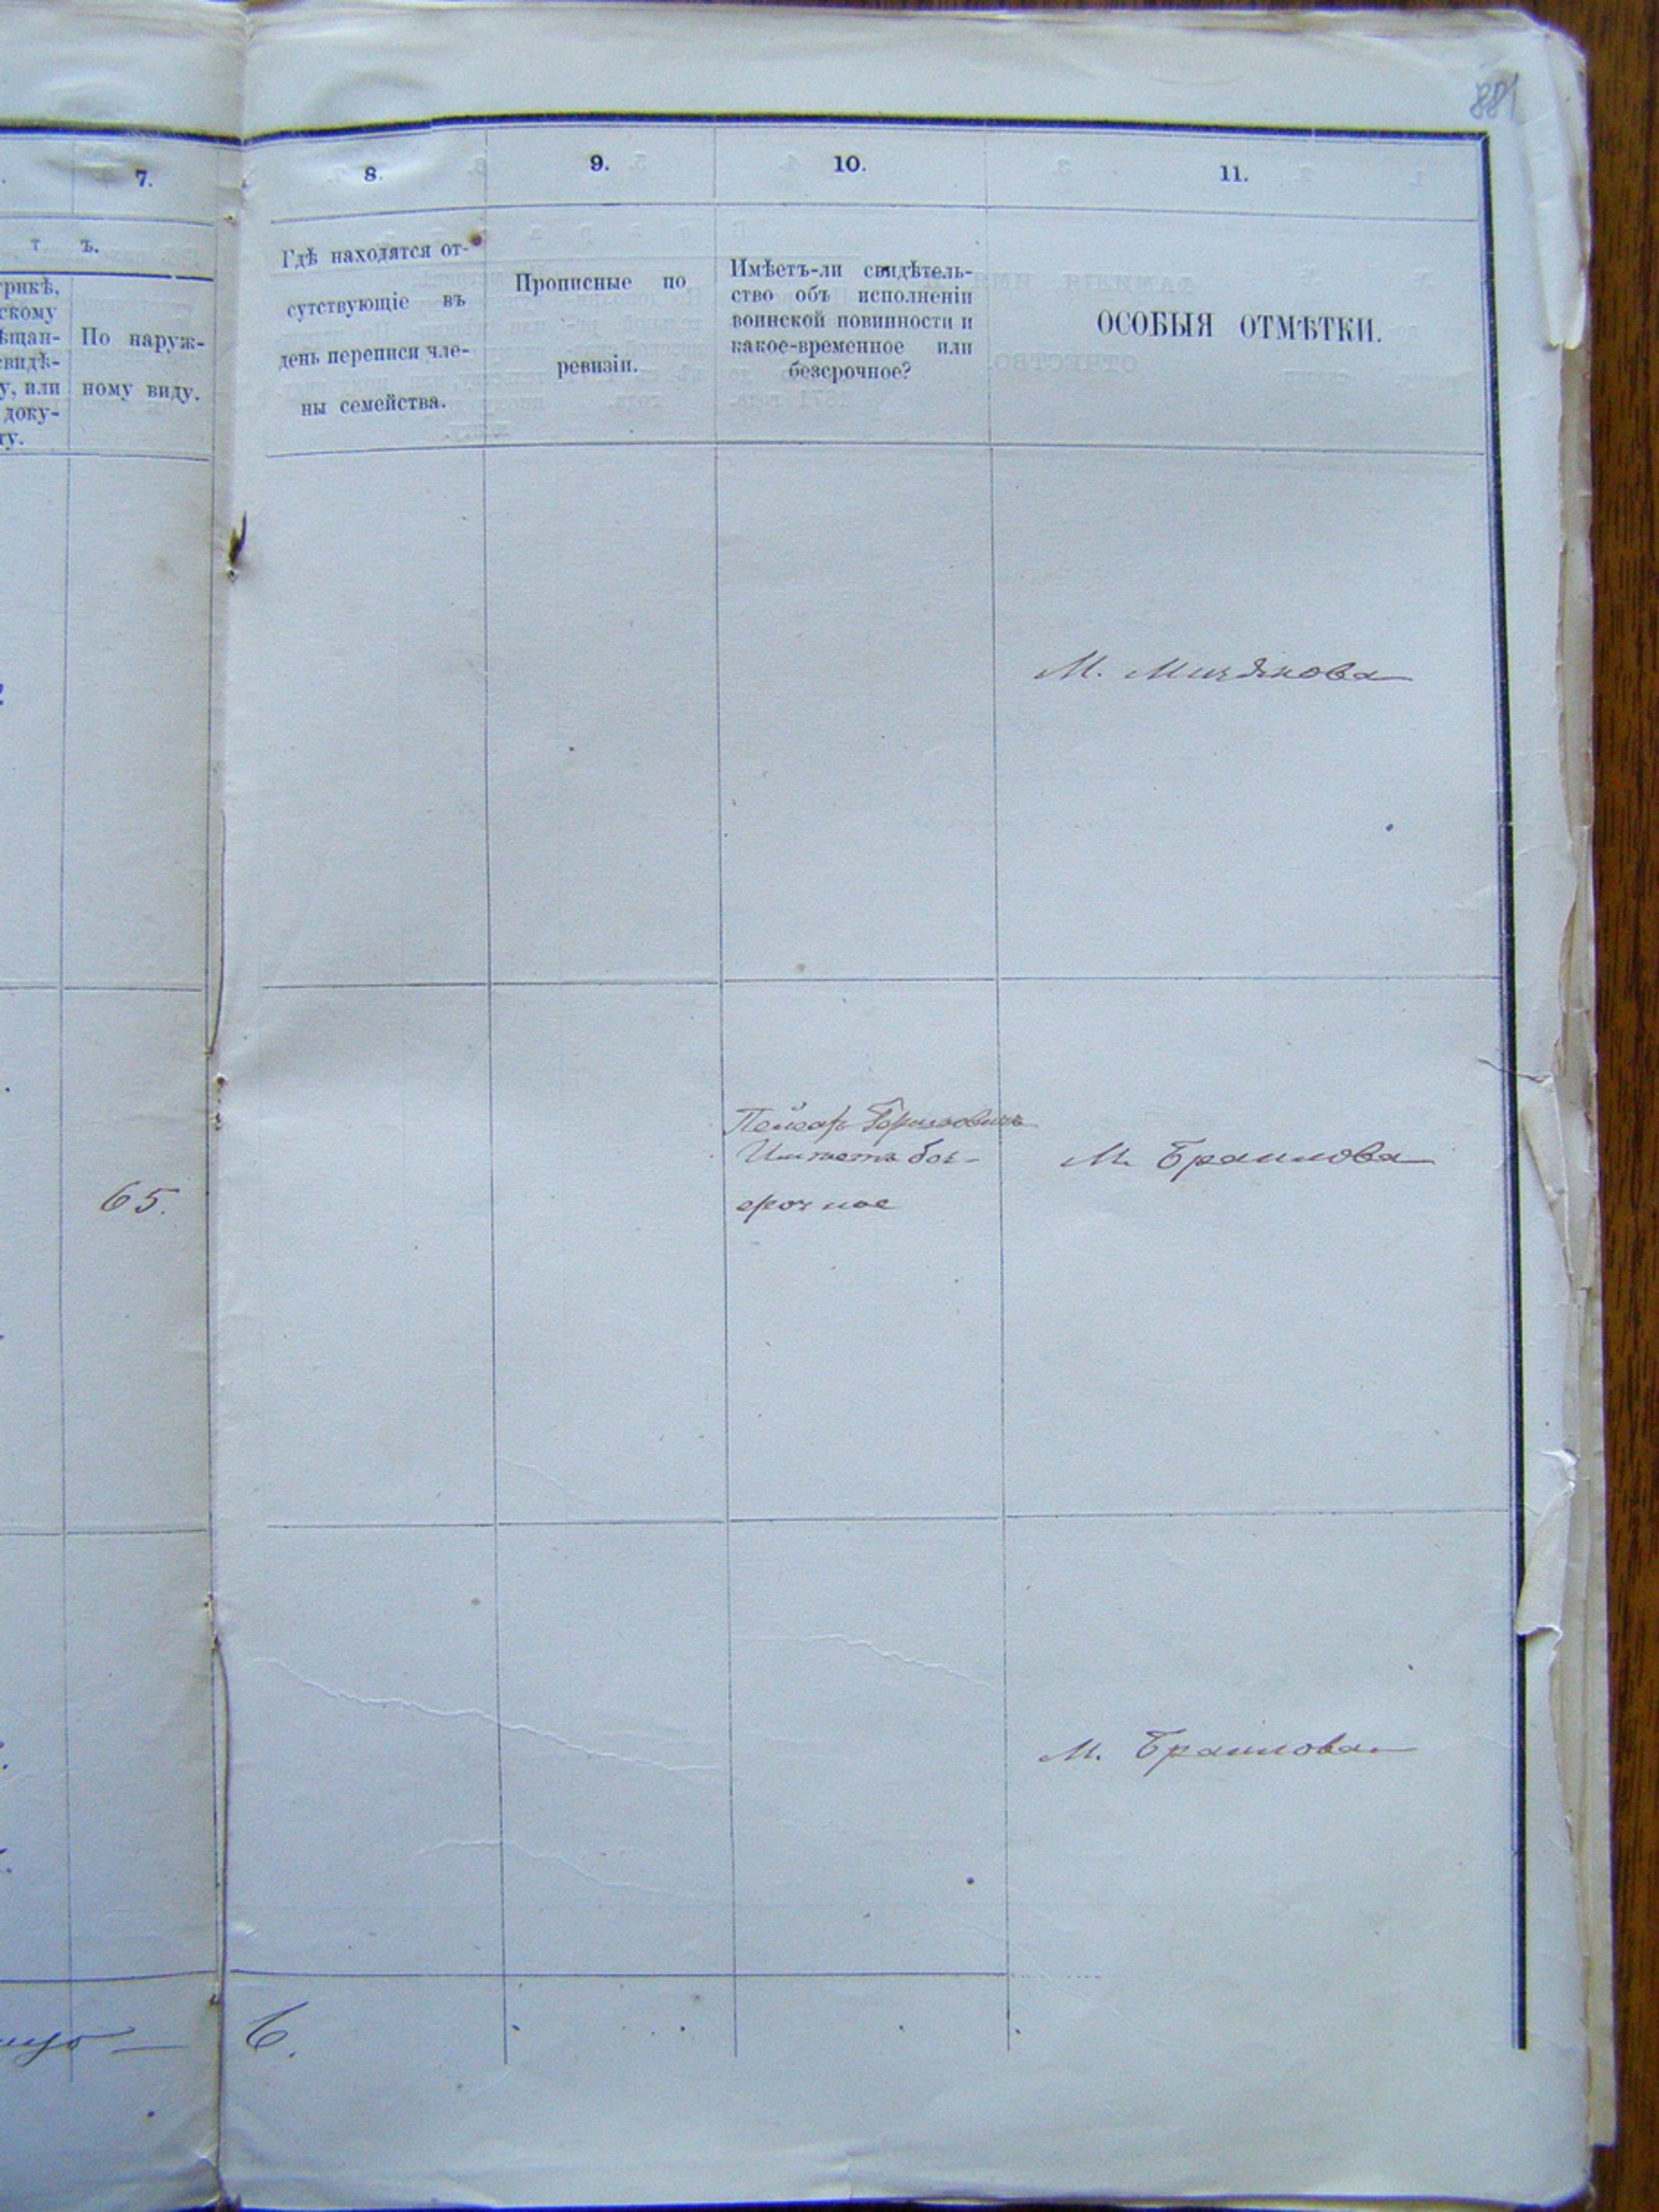 881
7.
8.
9.
10.
11.
т ъ.
трикѣ,
скому
ѣщан-
свидѣ-
у, или
доку-
ту.
По наруж-
ному виду.
Гдѣ находятся от-
сутствующіе въ
день переписи чле-
ны семейства.
Прописные по
ревизіи.
Имѣетъ-ли свидѣтель-
ство объ исполненіи
воинской повинности и
какое-временное или
безсрочное?
ОСОБЫЯ ОТМѢТКИ.
М.
65.
Пейсахъ Гершковичъ
Имѣетъ без-
срочное
М. Браилова
М. Браилова
6.